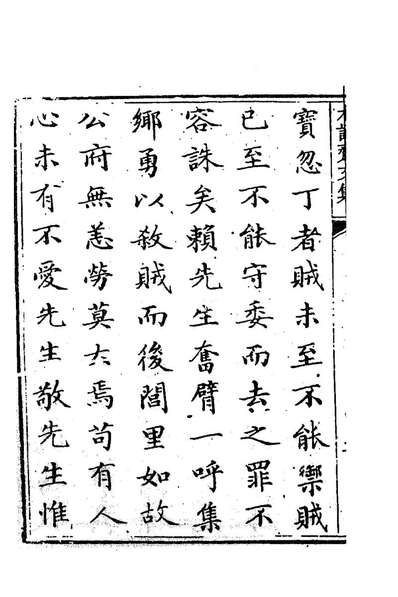 寶忽丁者賊未至不能禦賊
已至不能守委而去之罪不
容誅矣賴先生奮臂一呼集
鄉勇以殺賊而後閭里如故
公府無恙勞莫大焉苟有人
心未有不愛先生敬先生惟